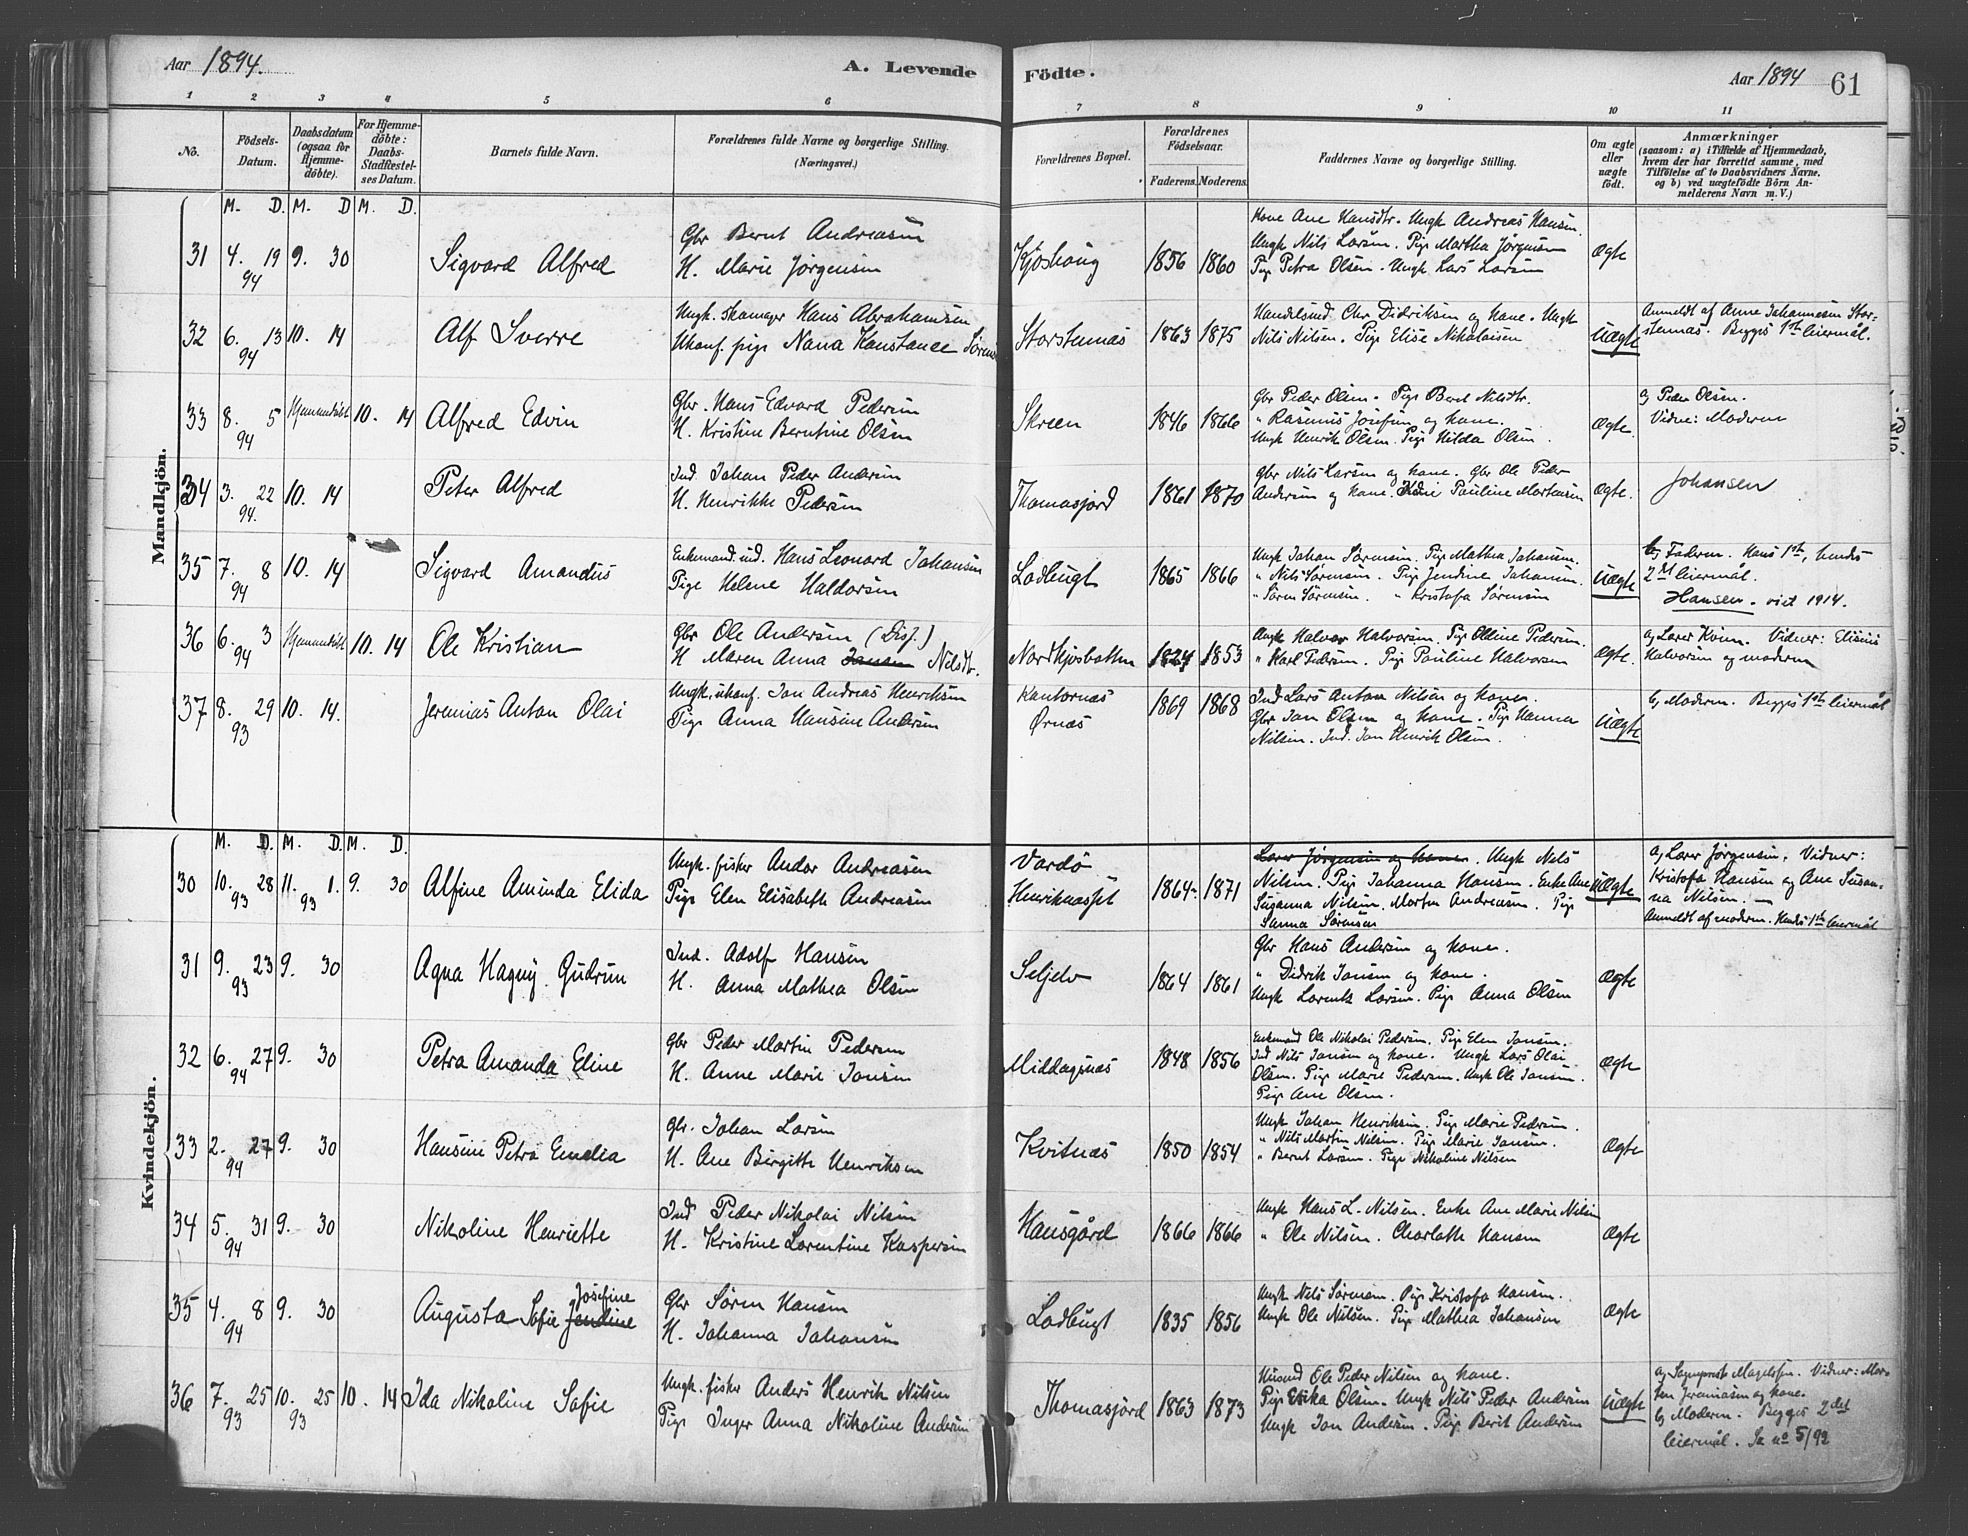 Aar 1894.
A. Levende Födte.
Aar 1894
61
1 2 3 4 5 6 7 8 9 10 11
No.
Födsels-Datum.
Daabsdatum (ogsaa for Hjemme-döbte).
For Hjemme-döbte: Daabs-Stadfæstel-ses Datum.
Barnets fulde Navn.
Forældrenes fulde Navne og borgerlige Stilling. (Næringsvei.)
Forældrenes Bopæl.
Forældrenes Födselsaar.
Faderens. Moderens.
Faddernes Navne og borgerlige Stilling.
Om ægte eller uægte födt.
Anmærkninger
(saasom: a) i Tilfælde af Hjemmedaab,
hvem der har forrettet samme, med
Tilföielse af to Daabsvidners Navne,
og b) ved uægtefödte Börn An-
melderens Navn m. V.)
Mandkjön.
M. D. M. D M. D.
31 4. 19 94 9. 30 Sigvard Alfred
Gbr Bernt Andreasen
H. Marie Jørgensen
Kjoshaug 1856 1860
Kone Ane Hansdtr. Ungk Andreas Hansen.
Ungk Nils Larsen. Pige Martha Jørgensen
Pige Petra Olsen. Ungk Lars Larsen
Ægte
32 6. 13 94 10. 14 Alf Sverre
Ungk. skomager Hans Abrahamsen
Ukonf. pige Nana Konstance Sørens
Storstennæs 1863 1875
Handelsmd. Chr Didriksen og kone. Ungk
Nils Nilsen. Pige Elise Nikolaisen
Uægte
Anmeldt af Anne Johannesen Stor-
stennæs. Begges 1ste leiermål.
33 8. 5 94 Hjemmedöbt 10. 14 Alfred Edvin
Gbr. Hans Edvard Pedersen
H. Kristine Berntine Olsen
Skreen 1846 1866
Gbr Peder Olsen. Pige Berit Nilsdtr.
" Rasmus Josefsen og kone.
Ungk Henrik Olsen. Pige Hilda Olsen.
Ægte.
a) Peder Olsen.
Vidne: Moderen
34 3. 22 94. 10. 14 Peter Alfred
Ind. Johan Peder Andersen
H. Henrikke Pedersen
Thomasjord 1861 1870
Gbr Nils Larsen og kone. Gbr Ole Peder
Andersen og kone. Pauline Mortensen
Ægte.
Johansen
35 7. 8 94 10. 14 Sigvard Amandus
Enkemand. ind. Hans Leonard Johansen
Pige Helene Haldorsen
Ladbugt 1865 1866
Ungk Johan Sørensen. Pige Mathea Johansen.
" Nils Sørensen. Pige Jendine Johansen.
" Søren Sørensen. " Kristofa Sørensen
Uægte
b) Faderen. Hans 1ste, hendes
2det leiermål.
Hansen. 1914.
36 6. 3 94 Hjemmedöbt 10. 14 Ole Kristian
Gbr Ole Andersen (Disj.)
H Maren Anna Jansen Nilsdtr.
Nordkjosbotten 1824 1853
Ungk Halvor Halvorsen. Pige Oldine Pedersen.
" Karl Pedersen. Pige Pauline Halvorsen
Ægte.
a) Lærer Kvien. Vidner: Elisæus
Halvorsen og moderen
37 8. 29 93 10. 14. Jeremias Anton Olai
Ungk. ukonf. Jon Andreas Henriksen
Pige Anna Hansine Andersen
Kantornæs
Ørnæs
1869 1868
Ind Lars Anton Nilsen og kone.
Gbr Jon Olsen og kone. Pige Hanna
Nilsen. Ind. Jon Henrik Olsen.
Uægte
b) Moderen. Begges 1ste leiermål
Kvindekjön.
M. D. M. D. M. D.
30 10. 28 93 11. 1. 93 9. 30 Alfine Aminda Elida
Ungk. fisker Andor Andreasen
Pige Elen Elisabeth Andreasen
Vardø
Henriknæsset
1864- 1871
Lærer Jørgensen og kone. Ungk Nils
Nilsen. Pige Johanna Hansen. Enke Ane
Susanna Nilsen. Morten Andreasen. Pige
Sanna Sørensen
Uægte
a) Lærer Jørgensen. Vidner:
Kristofa Hansen og Ane Susan-
na Nilsen. —
Anmeldt af moderen. Hendes 1ste leiermål
31 9. 23 93 9. 30 Agna Hagny. Gudrun
Ind. Adolf Hansen
H. Anna Mathea Olsen
Seljelv 1864 1861
Gbr Hans Andersen og kone.
" Didrik Jansen og kone.
Ungk Lorentz Larsen. Pige Anna Olsen
Ægte
32 6. 27 94 9. 30 Petra Amanda Eline
Gbr Peder Martin Pedersen
H. Anne Marie Jansen
Middagsnæs 1848 1856
Enkemand Ole Nikolai Pedersen. Pige Elen Jansen.
Ind Nils Jansen og kone. Ungk Lars Olai
Olsen. Pige Marie Pedersen. Ungk Ole Jansen.
Pige Ane Olsen.
Ægte
33 2. 27 94 9. 30 Hansine Petra Emelia
Gbr. Johan Larsen
H. Ane Birgitte Henriksen
Kvitnæs 1850 1854
Ungk Johan Henriksen. Pige Marie Pedersen.
" Nils Martin Nilsen. Pige Marie Jansen.
" Bernt Larsen. Pige Nikoline Nilsen
Ægte
34 5. 31 94 9. 30 Nikoline Henriette
Ind Peder Nikolai Nilsen
H. Kristine Lorentine Kaspersen
Hansgård 1866 1866
Ungk Hans L. Nilsen. Enke Ane Marie Nilsen
" Ole Nilsen. Charlotte Hansen
Ægte
35 4. 8 94 9. 30 Augusta Sofie Jendine Josefine
Gbr Søren Hansen
H. Johanna Johansen
Ladbugt 1835 1856
Ungk Nils Sørensen. Pige Kristofa Hansen.
Ungk Ole Nilsen. Pige Mathea Johansen
Ægte
36 7. 25 93 10. 25 93 10. 14 Ida Nikoline Sofie
Ungk. fisker Anders Henrik Nilsen
Pige Inger Anna Nikoline Andersen
Thomasjord 1863 1873
Husmd Ole Peder Nilsen og kone.
Pige Erika Olsen. Ungk Nils Peder Andersen
Ungk Jon Andersen. Pige Berit Andersen
Uægte
a) Sogneprest Magelssen. Vidner: Mor-
ten Jeremiasen og kone.
b) Moderen. Begges 2det
leiermål. Se no 5/92